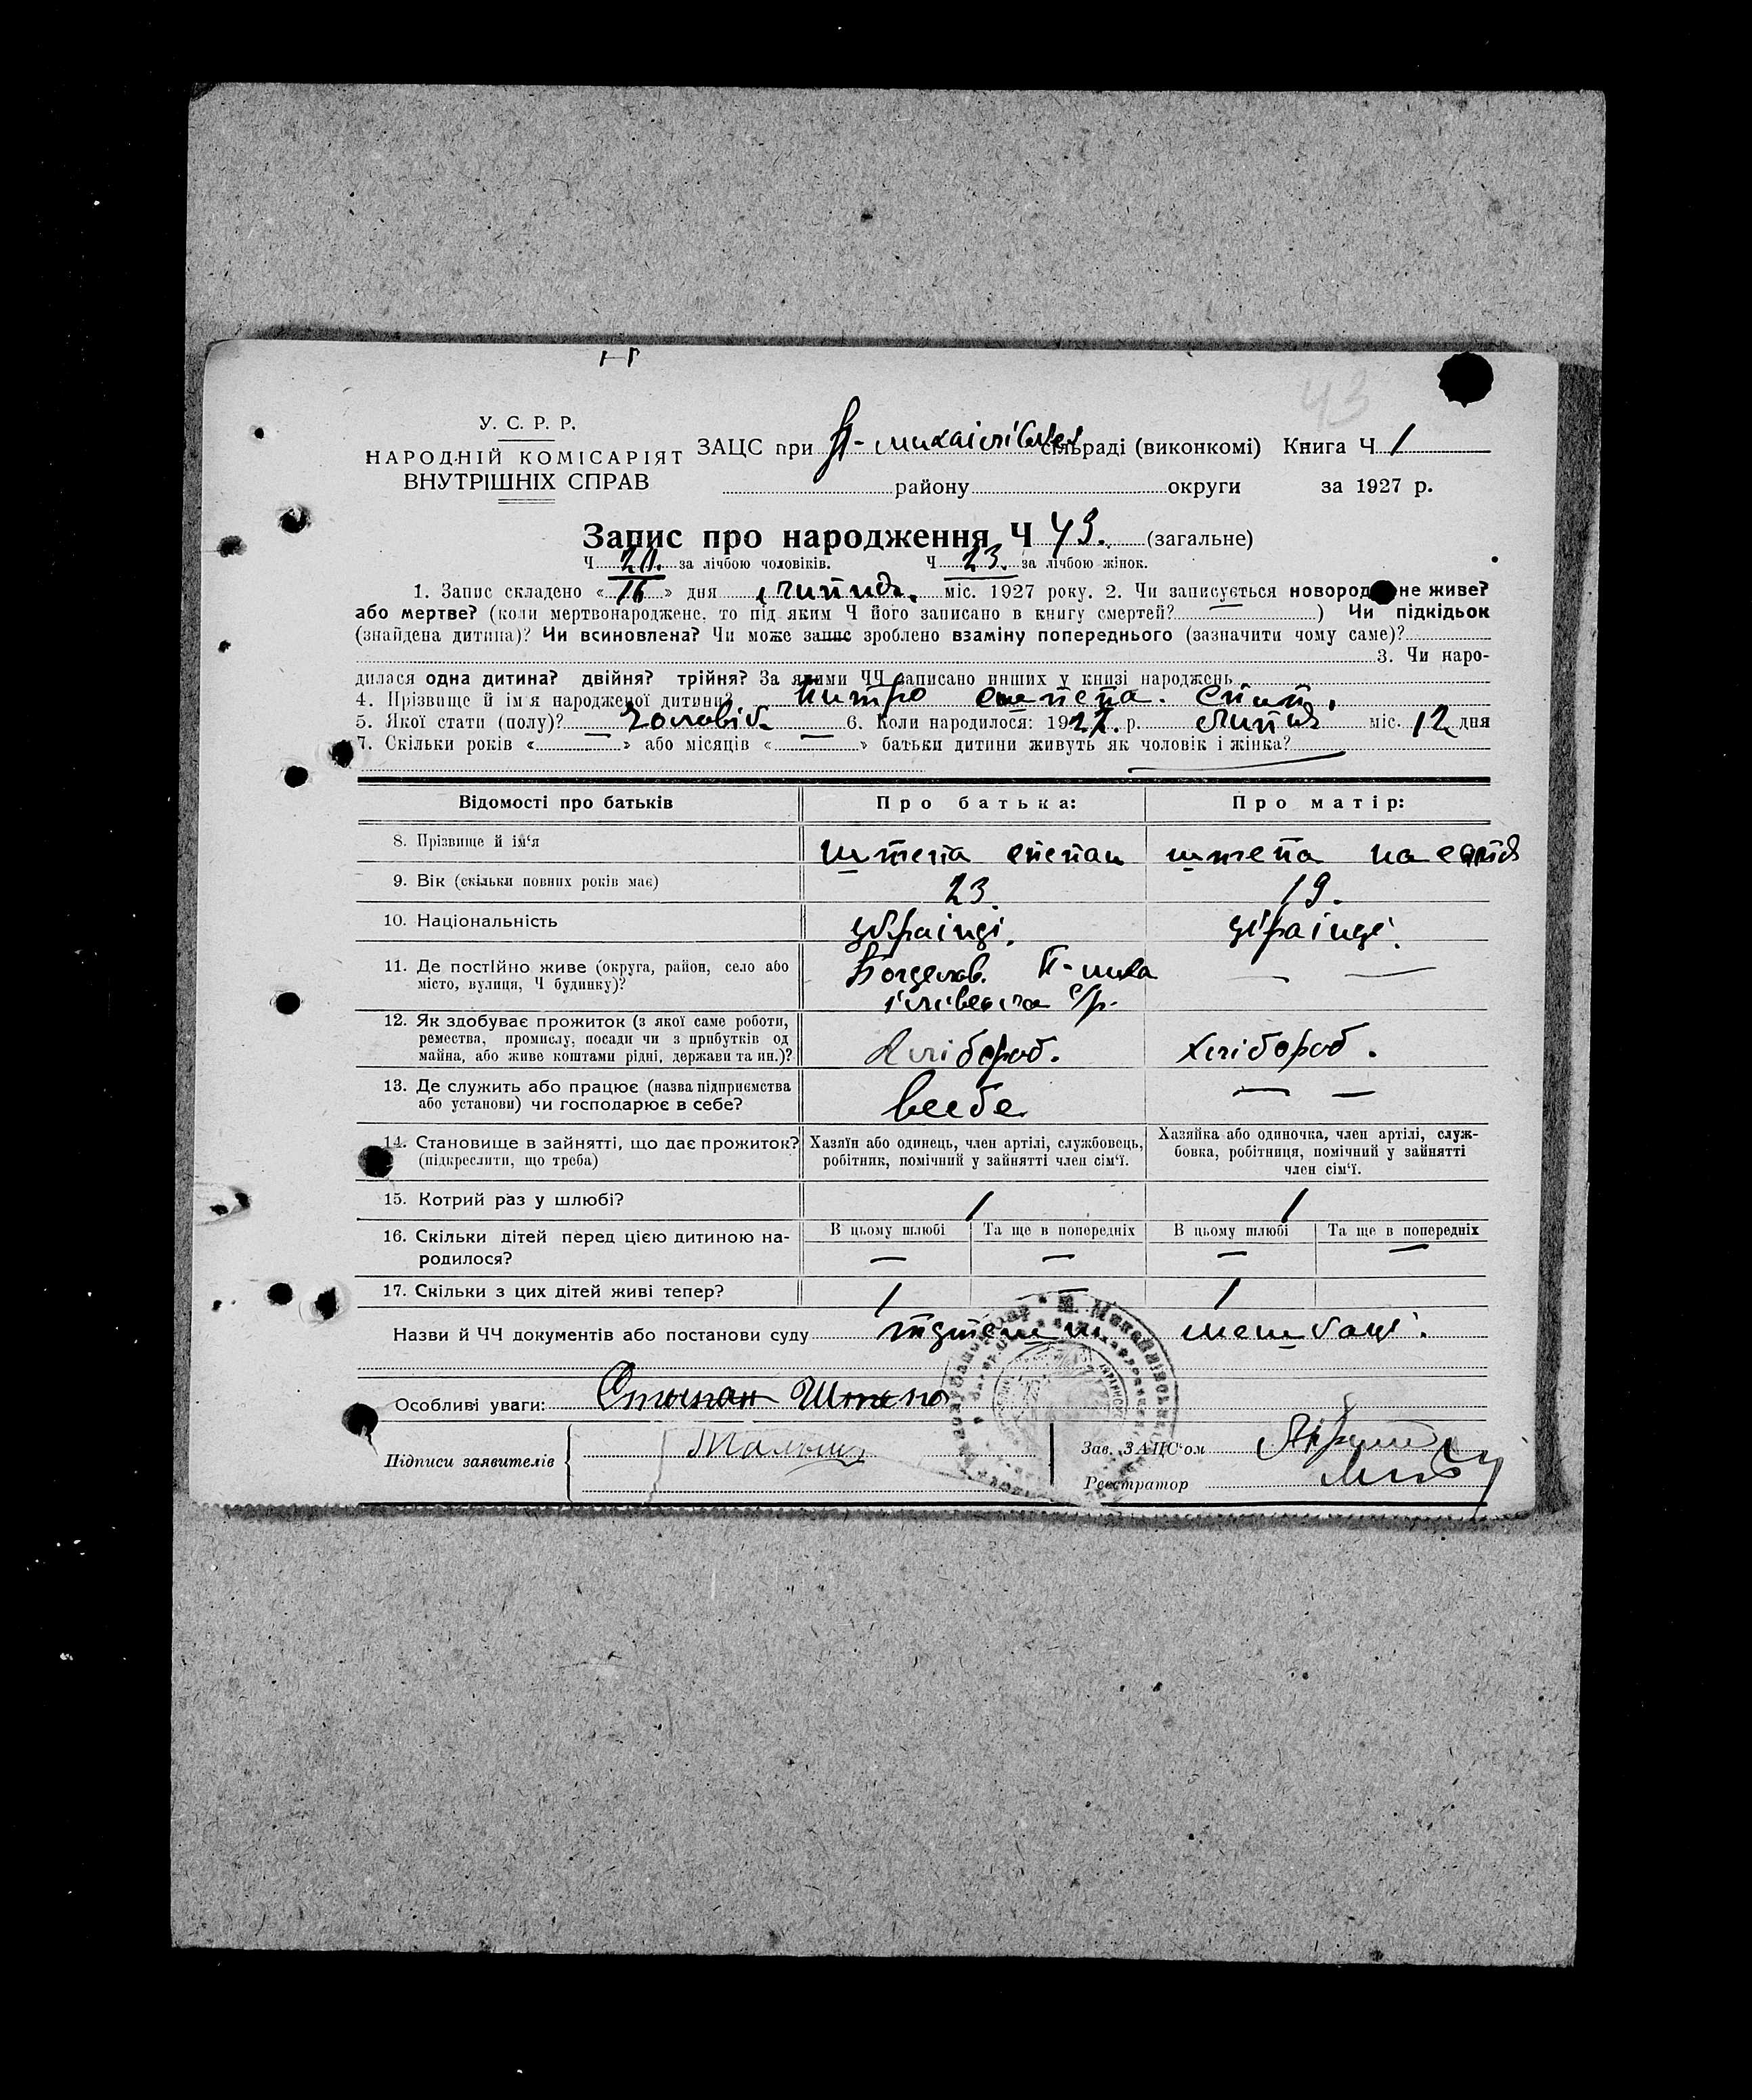 43
У. С. Р. Р.
НАРОДНІЙ КОМІСАРІЯТ
ВНУТРІШНІХ СПРАВ
ЗАЦС при сільраді (виконкомі) Книга Ч 1
району округи за 1927 р.
Запис про народження Ч 43. (загальне)
Ч 20. за лічбою чоловіків. Ч 23. за лічбою жінок.
1. Запис складено « 16 » дня липня. міс. 1927 року. 2. Чи записується новород не живе?
або мертве? (коли мертвонароджене, то під яким Ч його записано в книгу смертей? ) Чи підкідьок
(знайдена дитина)? Чи всиновлена? Чи може запис зроблено взаміну попереднього (зазначити чому саме)?
3. Чи наро-
дилася одна дитина? двійня? трійня? За якими ЧЧ записано инших у книзі народжень
4. Прізвище й ім'я народженої дитини?
5. Якої стати (полу)? 6. Коли народилося: 1927. р. липня міс. 12 дня
7. Скільки років « — » або місяців « — » батьки дитини живуть як чоловік і жінка?
Відомості про батьків Про батька: Про матір:
8. Прізвище й ім'я штепа степан штепа
9. Вік (скільки повних років має) 23. 19.
10. Національність україн україн
11. Де постійно живе (округа, район, село або
місто, вулиця, Ч будинку)? с/р. — —
12. Як здобуває прожиток (з якої саме роботи,
ремества, промислу, посади чи з прибутків од
майна, або живе коштами рідні, держави та ин.)? Хлібороб. Хлібороб.
13. Де служить або працює (назва підприємства
або установи) чи господарює в себе? всебе — —
14. Становище в зайнятті, що дає прожиток?
(підкреслити, що треба)
Хазяїн або одинець, член артілі, службовець,
робітник, помічний у зайнятті член сім'ї.
Хазяйка або одиночка, член артілі, служ-
бовка, робітниця, помічний у зайнятті
член сім'ї.
15. Котрий раз у шлюбі? 1 1
16. Скільки дітей перед цією дитиною на-
родилося?
В цьому шлюбі Та ще в попередніх В цьому шлюбі Та ще в попередніх
— — — —
17. Скільки з цих дітей живі тепер? 1 — 1
Назви й ЧЧ документів або постанови суду
Особливі уваги: Степан Штепа
Підписи заявителів
Зав. ЗАЦС'ом
Реєстратор